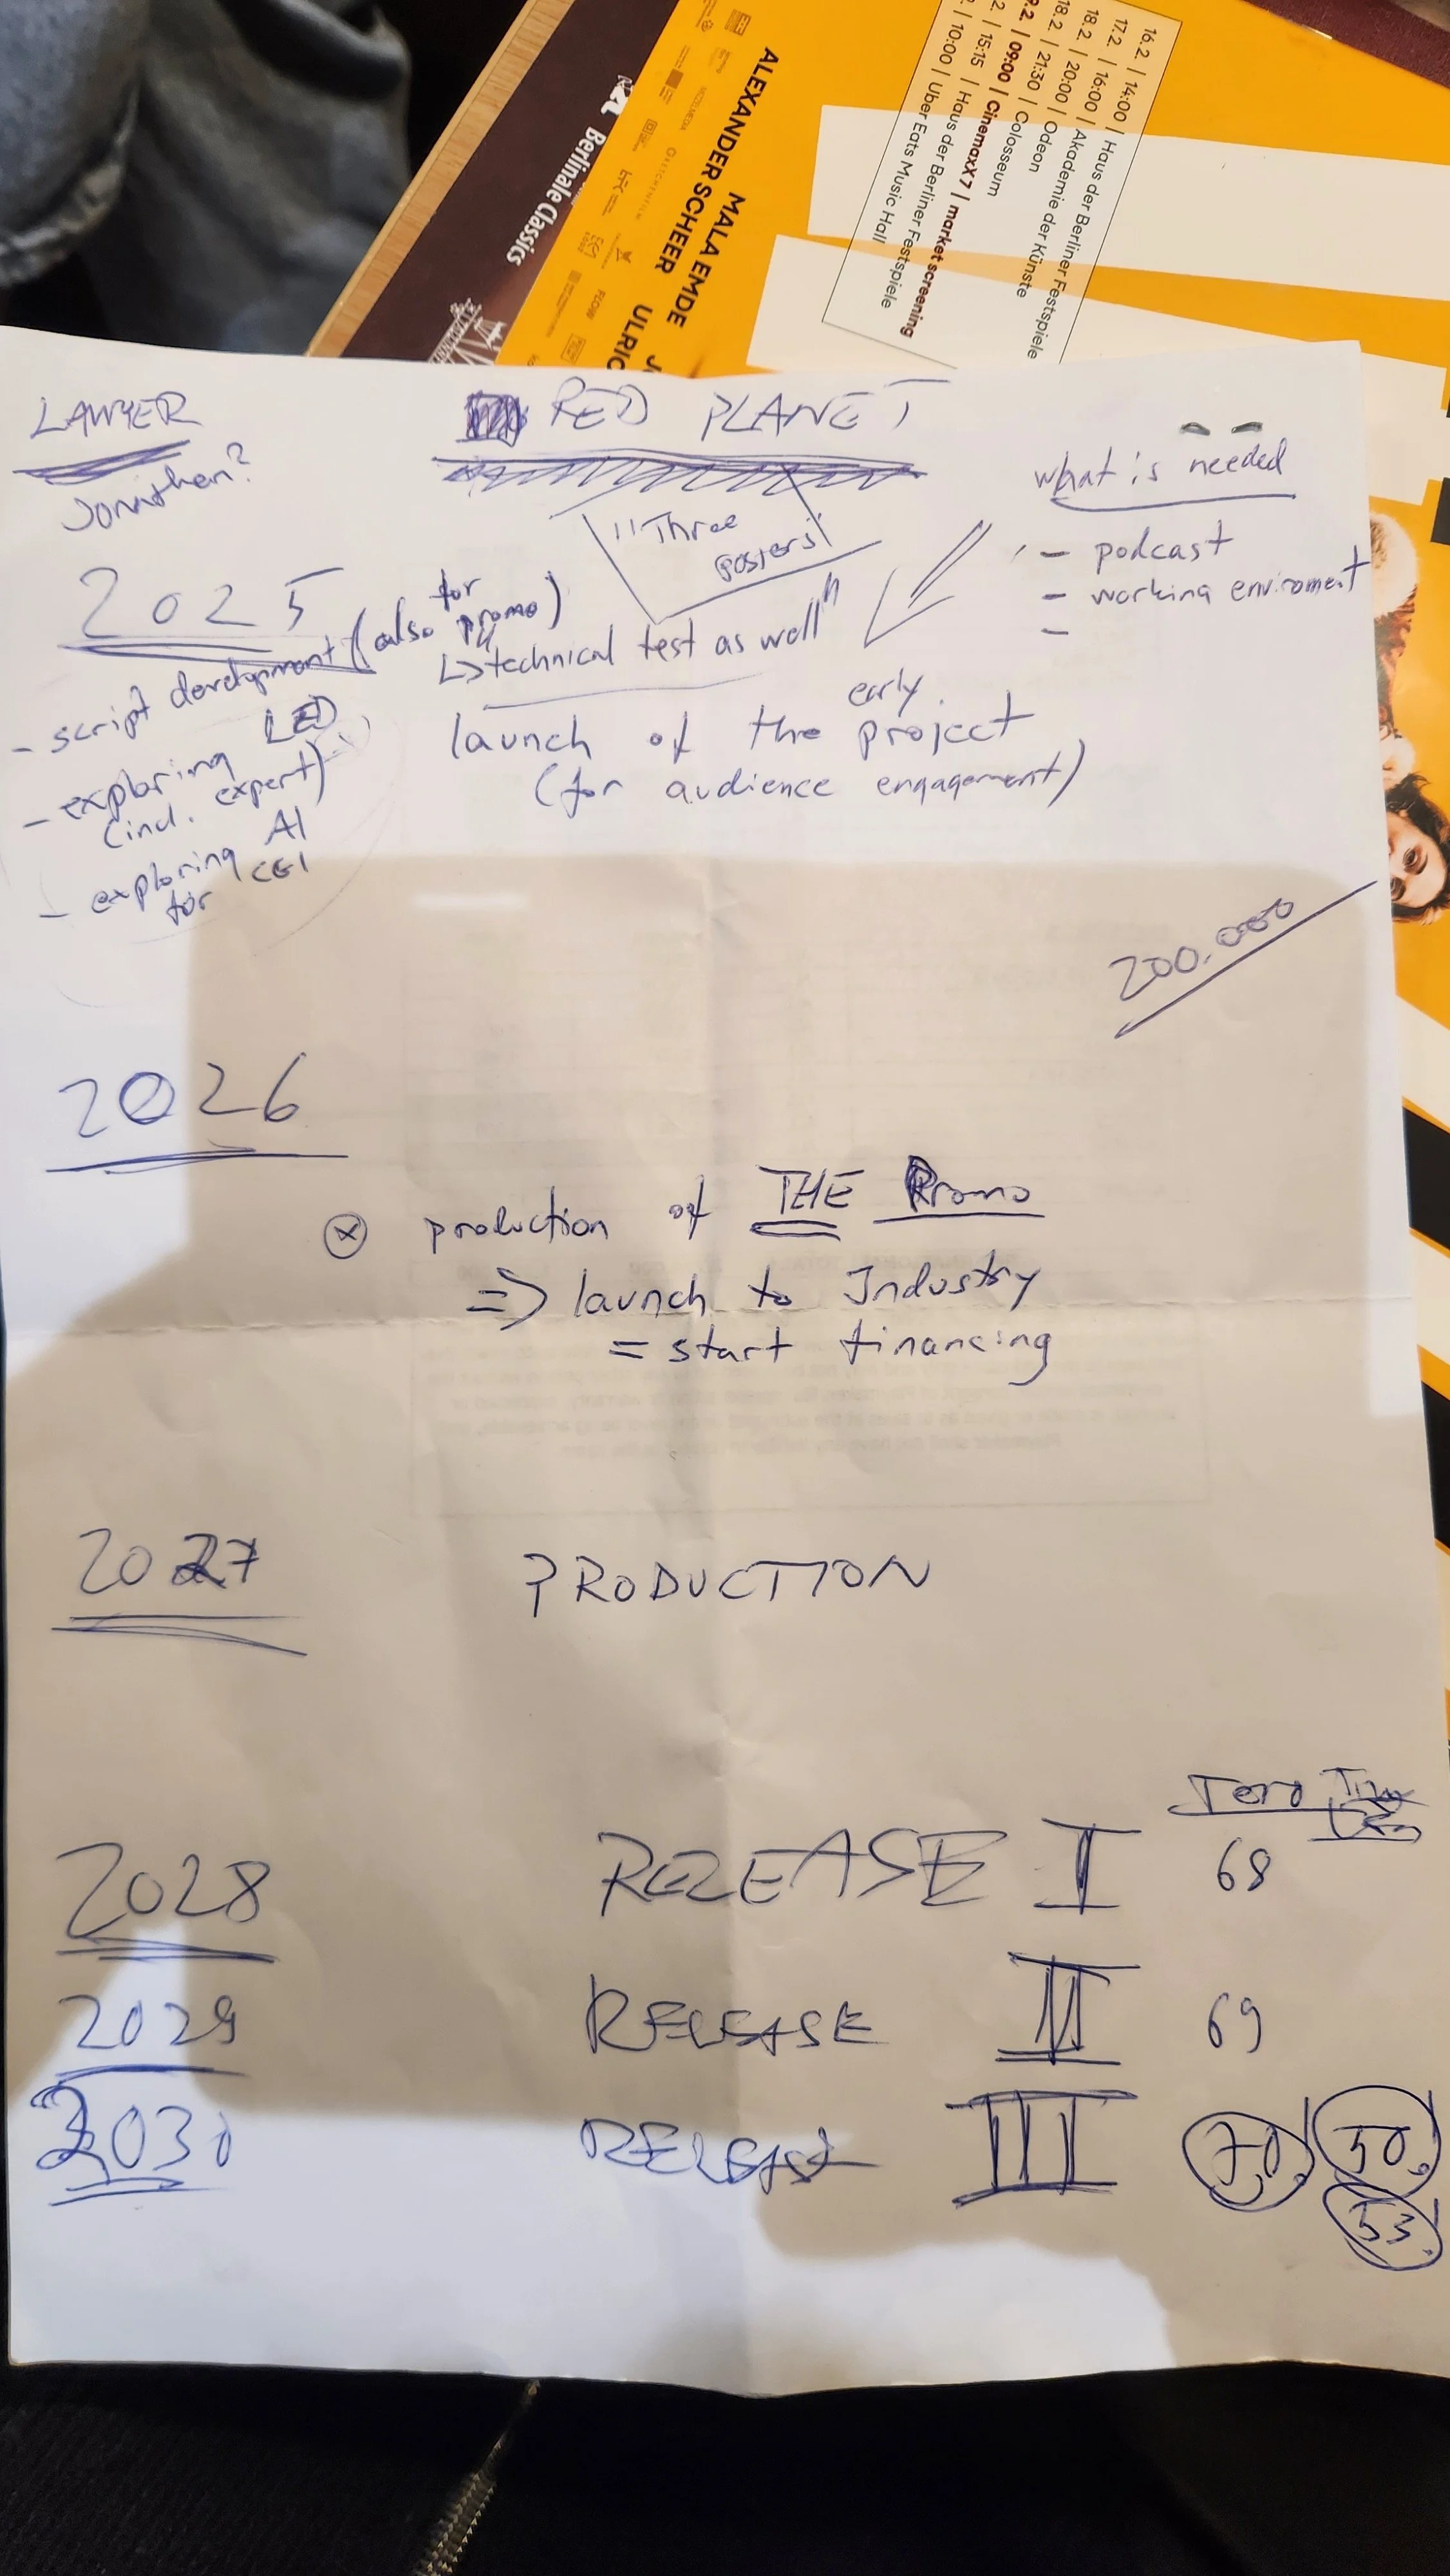 16.2. | 14:00 | Haus der Berliner Festspiele
17.2. | 16:00 | Akademie der Künste
18.2. | 20:00 | Odeon
18.2. | 21:30 | Colosseum
9.2. | 09:00 | CinemaxX 7 | market screening
2 | 15:15 | Haus der Berliner Festspiele
10:00 | Uber Eats Music Hall
ALEXANDER SCHEER
MALA EMDE
ULRIC
Berlinale Classics
LAWYER
Jonathan?
RED PLANET
"Three
posters"
↳ technical test as well"
what is needed
- podcast
- working enviroment
-
2025
- script development (also for promo)
- exploring LED
(incl. expert)
- exploring AI
for CGI
launch of the early project
(for audience engagement)
200.000
2026
ⓧ production of THE Promo
=> launch to Industry
= start financing
2027 PRODUCTION
Tero
2028 RELEASE I 68
2029 RELEASE II 69
2030 RELEASE III 70. 50.
53.